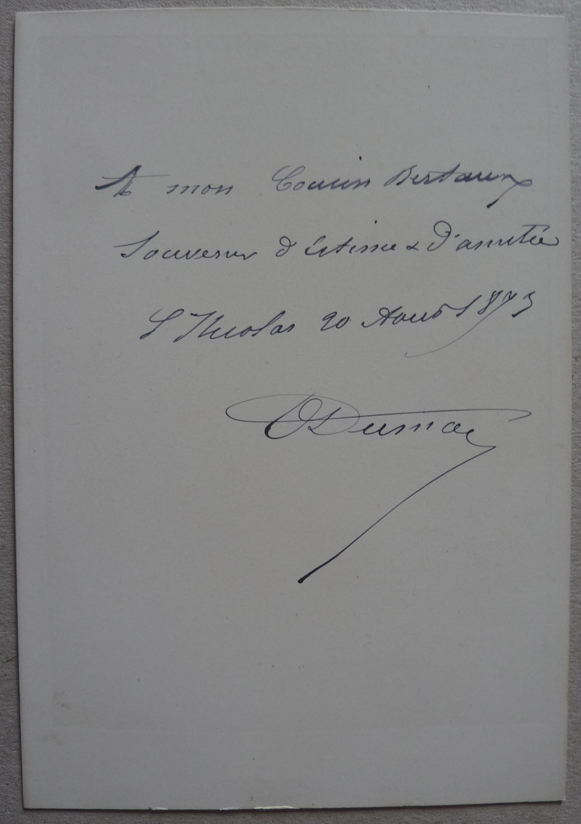 A mon Cousin Bertaux
Souvenir d'estime & d'amitié
St Nicolas 20 Août 1873
Dumas